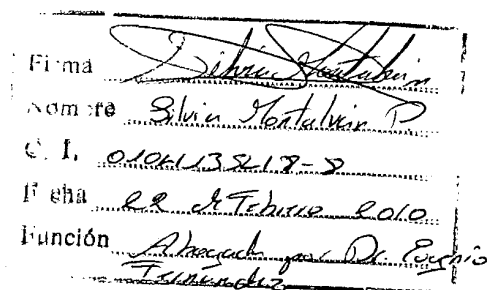 Firma Silvia Montalván
Nombre Silvia Montalván P.
C. I.
Fecha 22 de Febrero 2010
Función Abogada por Dr. Eugenio
Fernández